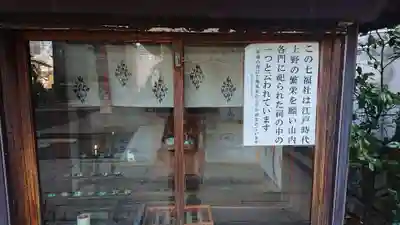 この七福社は江戸時代
上野の繁栄を願い山内
各門に祀られた祠の中の
一つと云われています